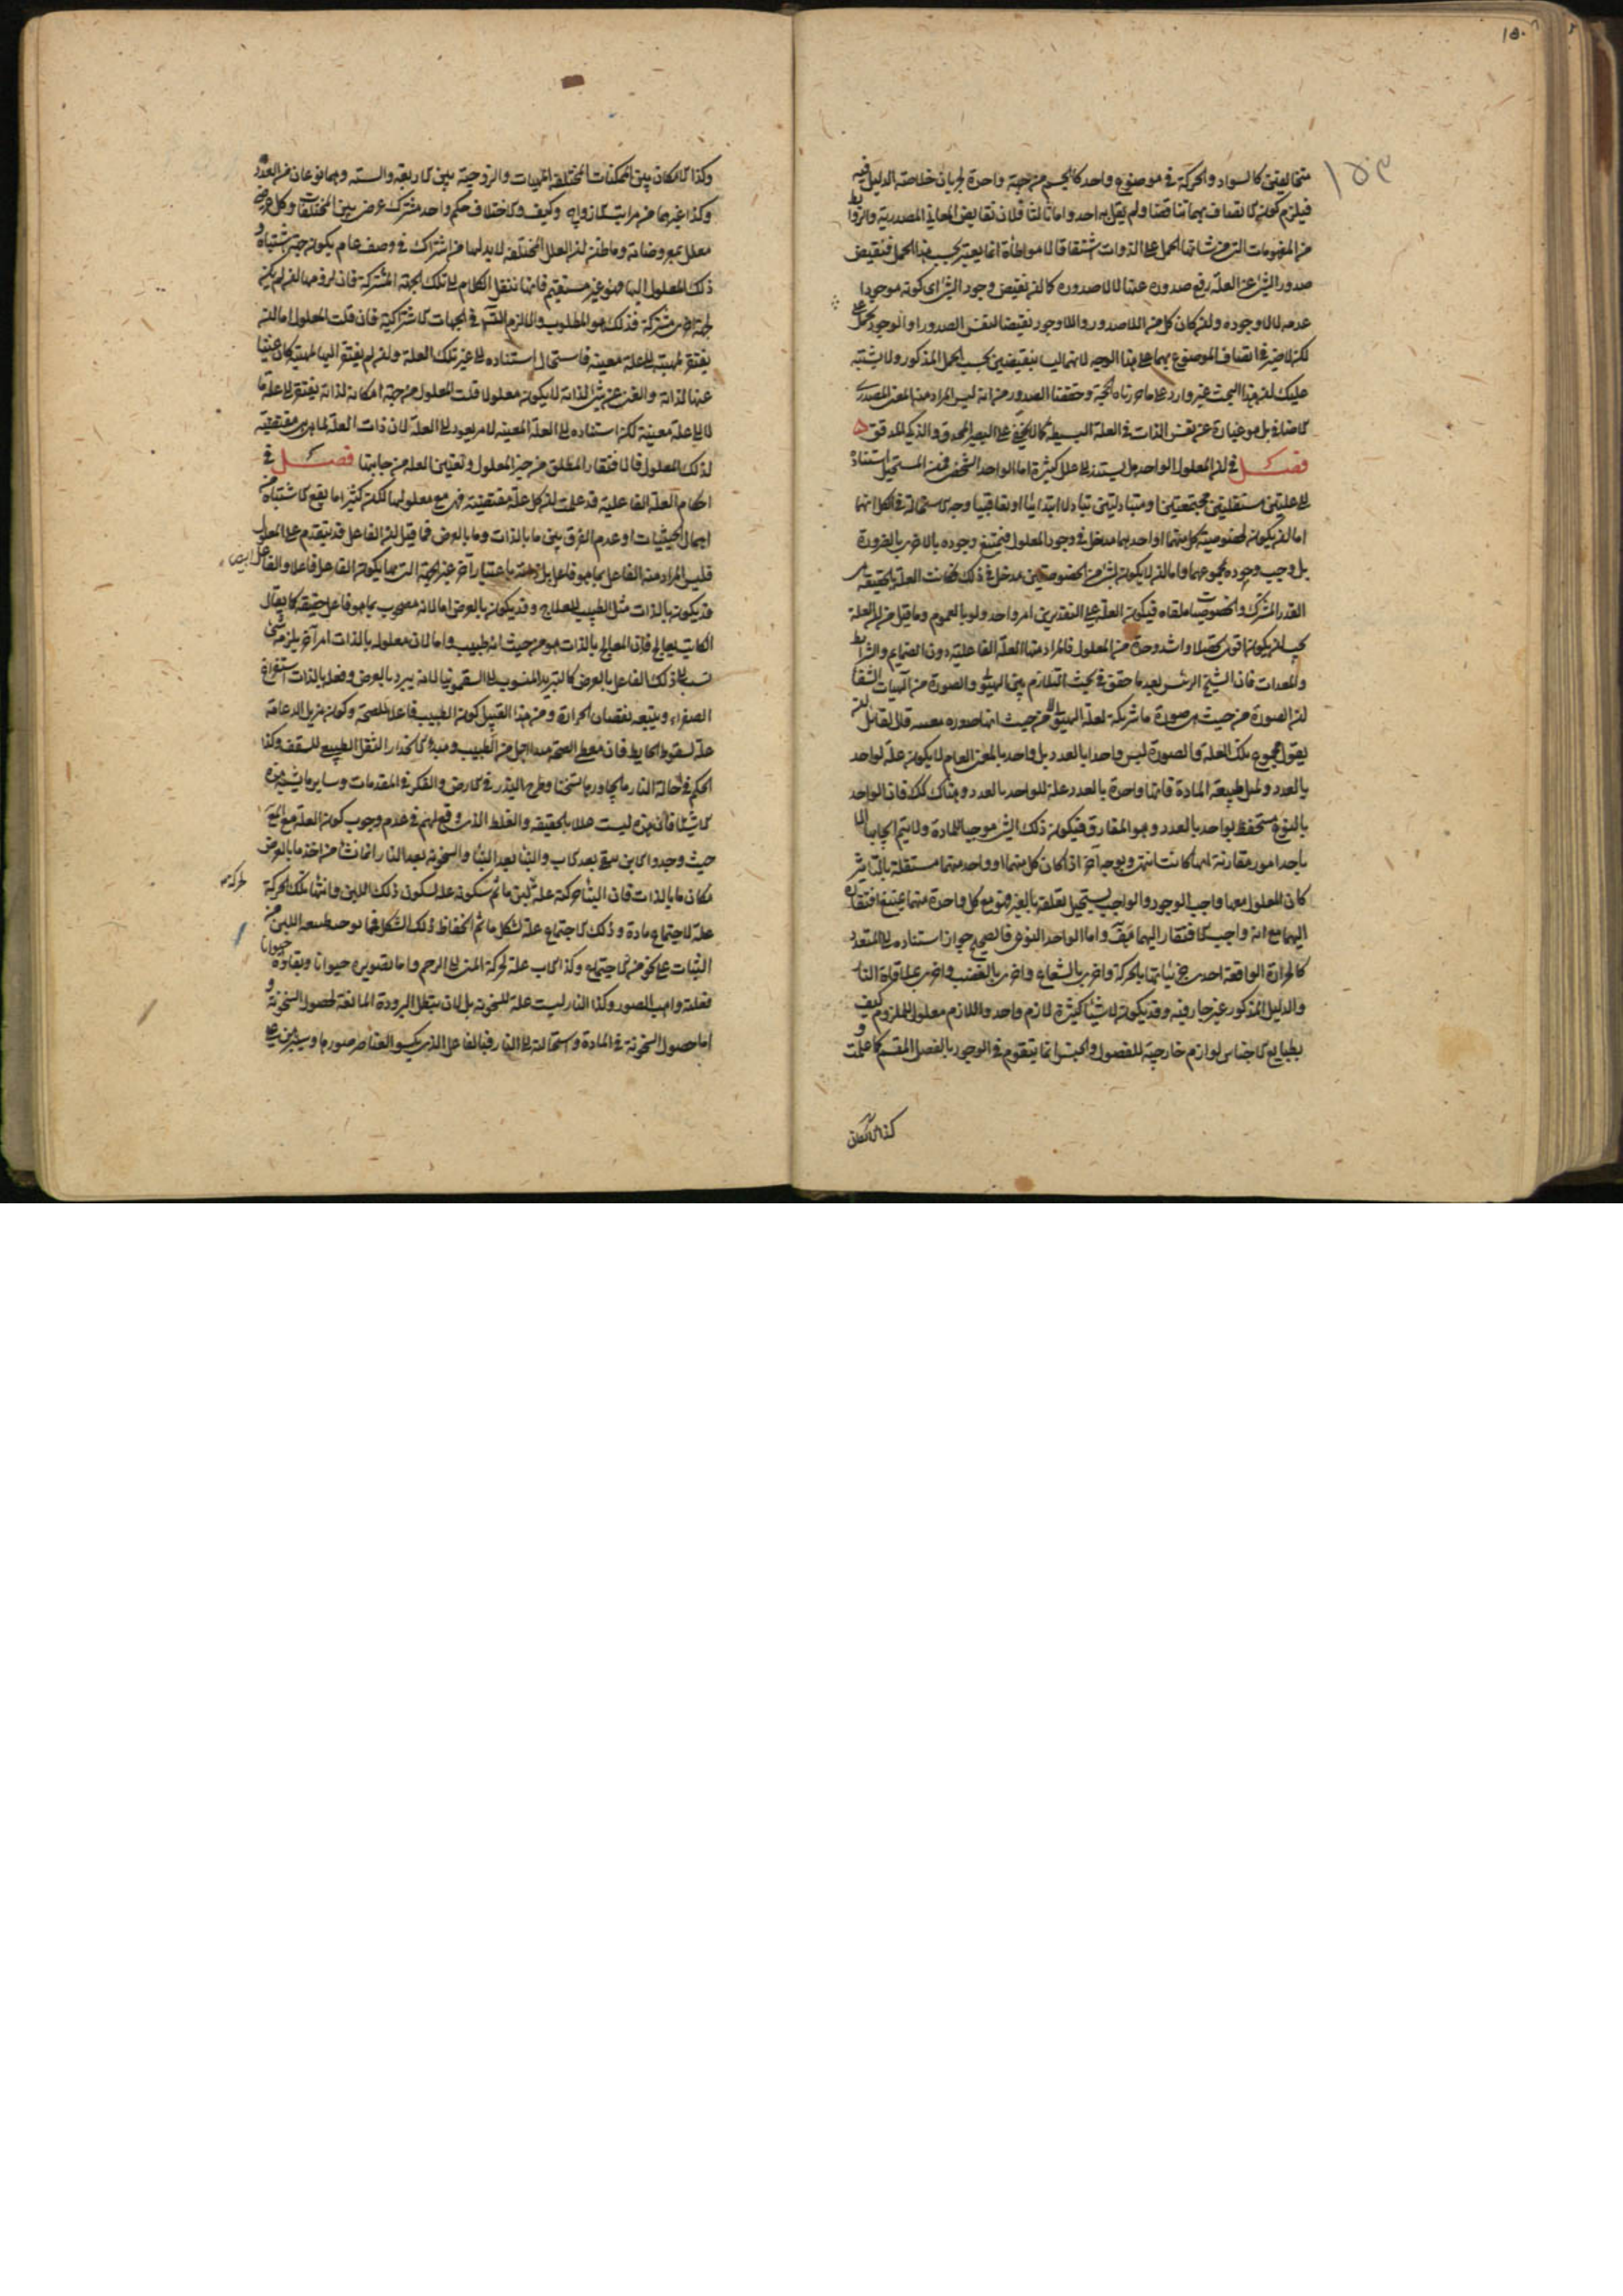 ١٥٠
١٥٣
متخالفين كالسواد والحركة في موضوع واحد كالجسم من جهة واحدة لجريان خلاصة الدليل فيه
فيلزم كون الاتصاف بهما تناقضا ولم يقل به احد واما ثالثا فلان نقايض المعاني المصدرية والروابط
من المفهومات التي من شانها الحمل على الذوات اشتقاقا لا مواطاة انما يعتبر بحسب هذا الحمل فنقيض
صدور الشئ عن العلة رفع صدوره عنها لا لاصدوره كما ان نقيض وجود الشئ اى كونه موجودا
عدمه لا لاوجوده وان كان كل من اللاصدور واللاوجود نقيضا لنفس الصدور او الوجود بحمل على
لكن لا ضير في اتصاف الموضوع بهما على هذا الوجه لانهما ليسا بنقيضين بحسب الحمل المذكور ولا يشتبه
عليك ان هذا البحث غير وارد على ما حررناه الحجة وحققنا الصدور من انه ليس المراد منه المعنى المصدرى
الاضافى بل هو عبارة عن نفس الذات في العلة البسيطة كما لا يخفى على البصير المحدق والذكى المدقق
فصل في ان المعلول الواحد هل يستند الى علل كثيرة اما الواحد الشخصى فمن المستحيل استناده
الى علتين مستقلتين مجتمعتين او متبادلتين تبادلا ابتدائيا او تعاقبيا وجه الاستحالة في الكل انهما
اما ان يكون لخصوصية كل منهما او احديهما مدخل في وجود المعلول فيمتنع وجوده بالاخرى بالضرورة
بل وجب وجوده بمجموعهما واما ان لا يكون لشئ من الخصوصيتين مدخل في ذلك فكانت العلة بالحقيقة هى
القدر المشترك والخصوصيات ملغاه فيكون العلة على التقديرين امر واحد ولو بالعموم وما قيل من ان العلة
يجب ان يكون اقوى تحصلا واشد وحدة من المعلول فالمراد منها العلة الفاعلية دون الضمايم والشرايط
والمعدات فان الشيخ الرئيس بعد ما حقق في بحث التلازم بين الهيولى والصورة من آلهيات الشفا
ان الصورة من حيث هى صورة ما شريكة لعلة الهيولى لا من حيث انها صورة معينه قال لقائل ان
يقول مجموع تلك العلة والصورة ليس واحدا بالعدد بل واحد بالمعنى العام لا يكون علة لواحد
بالعدد ولمثل طبيعة المادة فانها واحدة بالعدد علة للواحد بالعدد وهناك كذلك فان الواحد
بالنوع مستحفظ بواحد بالعدد وهو المفارق فيكون ذلك الشئ موجبا للمادة ولا يتم ايجابها الا
باحد امور مقارنة ايها كانت انتهى وبوجه آخر اذا كان كل منهما او واحد منهما مستقلة بالتاثير
كان المعلول معها واجب الوجود والواجب يستحيل تعلقه بالغير فهو مع كل واحدة منهما يمتنع افتقاره
اليهما مع انه واجب الافتقار اليهما هف واما الواحد النوعى فالصحيح جواز استناده الى المتعدد
كالحرارة الواقعة احدى جزئياتها بالحركة واخرى بالشعاع واخرى بالغضب واخرى بملاقاة النار
والدليل المذكور غير جار فيه وقد يكون لاشياء كثيرة لازم واحد واللازم معلول للملزوم كيف و
طبايع الاجناس لوازم خارجية للفصول والجنس انما يتقوم في الوجود بالفصل المقسم كما علمت
كذا الامكان
وكذا الامكان بين الممكنات المختلفة المهيات والزوجية بين الاربعة والستة وهما نوعان من العدد
وكذا غيرهما من مراتب الازواج وكيف والاختلاف حكم واحد مشترك عرضى بين المختلفات وكل عرضى
معلل بمعروضاته وما ظن ان العلل المختلفة لابد لها من اشتراك في وصف عام يكون جهة استناد
ذلك المعلول اليها فهو غير مستقيم فانا ننقل الكلام الى تلك الجهة المشتركة فان لزومها ان لم يكن
لجهة اخرى مشتركة فذلك هو المطلوب والا لزم التسلسل في الجهات الاشتراكية فان قلت المعلول اما ان
يفتقر لمهيته الى علة معينه فاستحال استناده الى غير تلك العلة وان لم يفتقر اليها لمهيته كان غنيا
عنها لذاته والغنى عن شئ لذاته لا يكون معلولا قلت المعلول من جهة امكانه لذاته يفتقر الى علة ما
لا الى علة معينه لكن استناده الى العلة المعينه لامر يعود الى العلة لان ذات العلة لما هى هى مقتضيه
لذلك المعلول فالافتقار المطلق من حيز المعلول وتعيين العلة من جانبها فصل في
احكام العلة الفاعلية قد علمت ان كل علة مقتضية فهى مع معلولها لكن كثيرا ما يقع الاشتباه من
اهمال الحيثيات او عدم الفرق بين ما بالذات وما بالعرض فما قيل ان الفاعل قد يتقدم على المعلول
فليس المراد منه الفاعل بما هو فاعل بل ذاته باعتبار آخر غير الجهة التى بها يكون الفاعل فاعلا والفاعل ايضا
قد يكون بالذات مثل الطبيب للعلاج وقد يكون بالعرض اما لانه مصحوب بما هو فاعل حقيقة كما يقال
الكاتب يعالج فان المعالج بالذات هو من حيث انه طبيب واما لان معلوله بالذات امر آخر يلزمه شئ
نسب الى ذلك الفاعل بالعرض كالتبريد المنسوب الى السقمونيا لانه يبرد بالعرض وفعله بالذات استفراغ
الصفراء ويتبعه نقصان الحرارة ومن هذا القبيل كون الطبيب فاعلا للصحة وكون مزيل الدعامة
علة لسقوط الحايط فان معطى الصحة مبدا اجل من الطبيب ومبدا الانحدار الثقل الطبيعى للسقف وكذا
الحكم في احالة النار ما يجاورها تسخنا وطرح البذر في الارض والفكر في المقدمات وساير ما يشبه هذه
الاشياء فان هذه ليست عللا بالحقيقه والغلط الذى وقع لهم في عدم وجوب كون العلة مع المعلول
حيث وجدوا الابن يبقى بعد الاب والبناء بعد البناء والسخونة بعد النار انما نشا من اخذ ما بالعرض
مكان ما بالذات فان البناء حركته علة لبن ما ثم سكونه علة لسكون ذلك اللبن وانتهاء تلك الحركة
علة لاجتماع مادة وذلك الاجتماع علة لشكل ما ثم انحفاظ ذلك الشكل فيما يوجبه طبيعة اللبن من
الثبات على نحو من الاجتماع وكذا الاب علة لحركة المنى الى الرحم واما تصويره حيوانا وبقاؤه حيوانا
فعلته واهب الصور وكذا النار ليست علة للسخونة بل لان يبطل البرودة المانعة لحصول السخونة و
اما حصول السخونة في المادة واستحالته الى النار فبالفاعل الذى يكسو العناصر صورها وسيتبين على